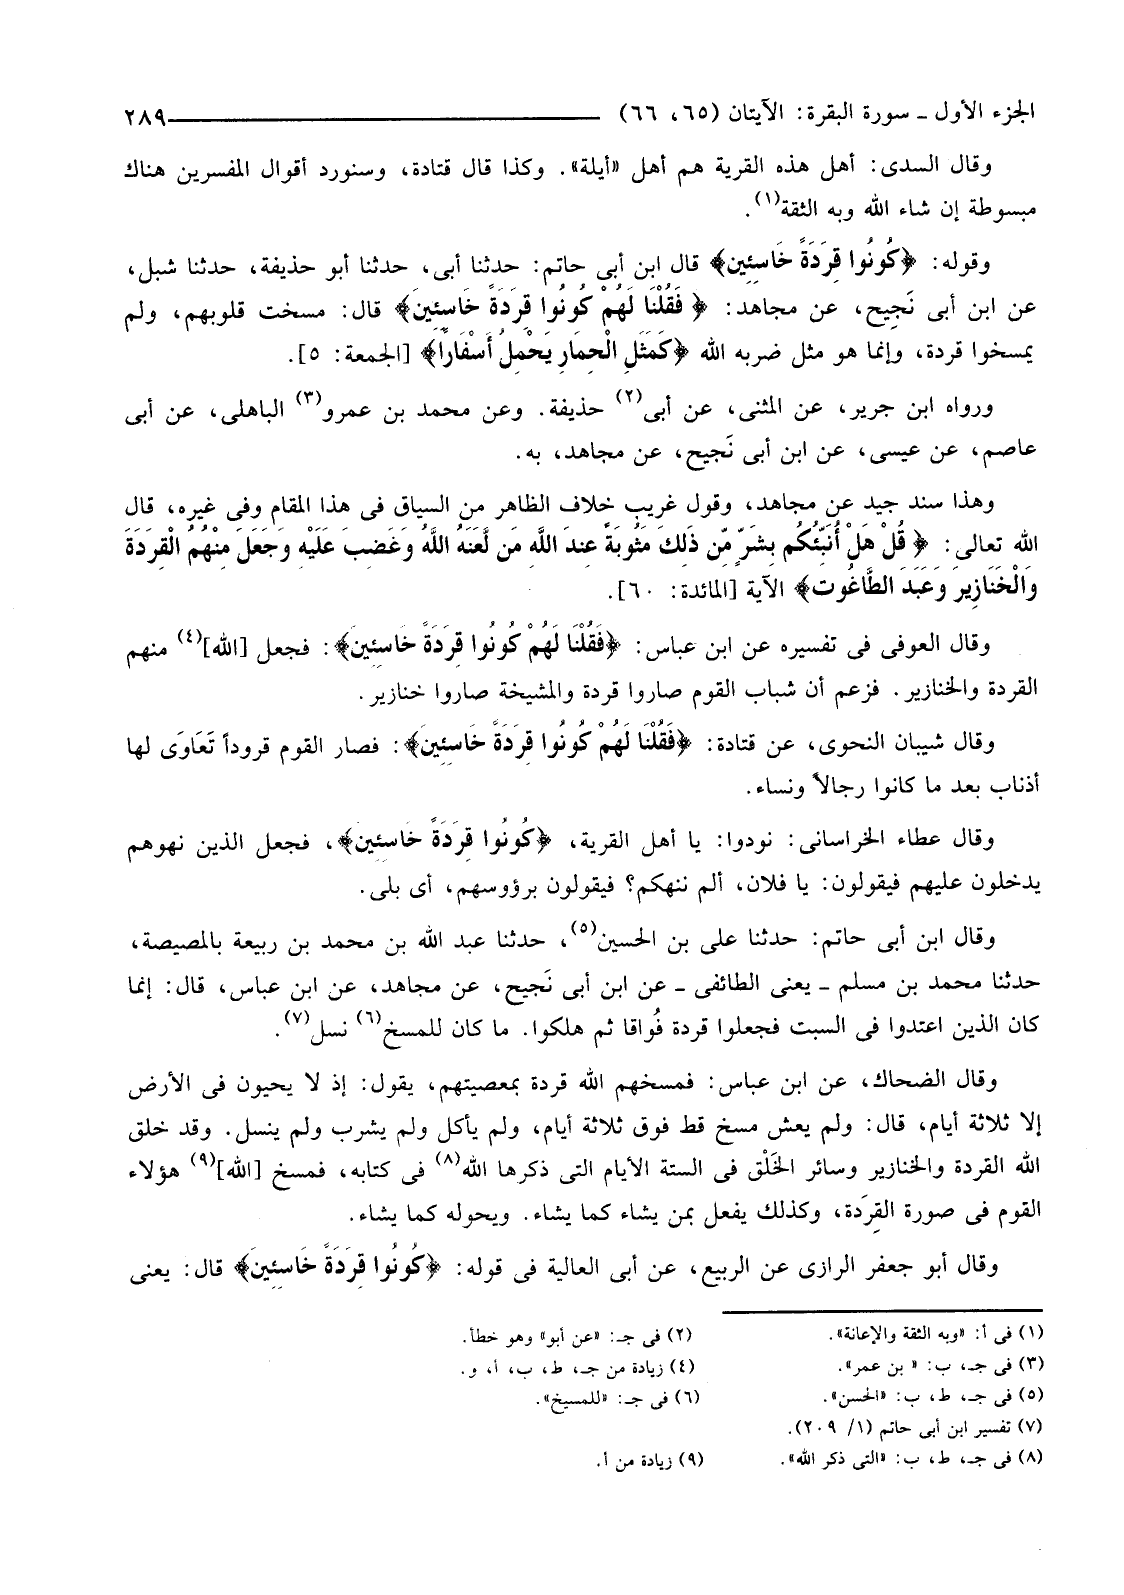 الجزء الأول ـ سورة البقرة: الآيتان (٦٥، ٦٦) ٢٨٩
وقال السدى: أهل هذه القرية هم أهل «أيلة». وكذا قال قتادة، وسنورد أقوال المفسرين هناك
مبسوطة إن شاء الله وبه الثقة(١).
وقوله: ﴿كُونُوا قِرَدَةً خَاسِئِين﴾ قال ابن أبى حاتم: حدثنا أبى، حدثنا أبو حذيفة، حدثنا شبل،
عن ابن أبى نَجِيح، عن مجاهد: ﴿ فَقُلْنَا لَهُمْ كُونُوا قِرَدَةً خَاسِئِينَ﴾ قال: مسخت قلوبهم، ولم
يمسخوا قردة، وإنما هو مثل ضربه الله ﴿كَمَثَلِ الْحِمَارِ يَحْمِلُ أَسْفَارًا﴾ [الجمعة: ٥].
ورواه ابن جرير، عن المثنى، عن أبى(٢) حذيفة. وعن محمد بن عمرو(٣) الباهلى، عن أبى
عاصم، عن عيسى، عن ابن أبى نَجيح، عن مجاهد، به.
وهذا سند جيد عن مجاهد، وقول غريب خلاف الظاهر من السياق فى هذا المقام وفى غيره، قال
الله تعالى: ﴿ قُلْ هَلْ أُنَبِّئُكُم بِشَرٍّ مِّن ذَلِكَ مَثُوبَةً عِندَ اللَّهِ مَن لَّعَنَهُ اللَّهُ وَغَضِبَ عَلَيْهِ وَجَعَلَ مِنْهُمُ الْقِرَدَةَ
وَالْخَنَازِيرَ وَعَبَدَ الطَّاغُوت﴾ الآية [المائدة: ٦٠].
وقال العوفى فى تفسيره عن ابن عباس: ﴿فَقُلْنَا لَهُمْ كُونُوا قِرَدَةً خَاسِئِينَ﴾: فجعل [الله](٤) منهم
القردة والخنازير. فزعم أن شباب القوم صاروا قردة والمشيخة صاروا خنازير.
وقال شيبان النحوى، عن قتادة: ﴿فَقُلْنَا لَهُمْ كُونُوا قِرَدَةً خَاسِئِينَ﴾: فصار القوم قروداً تَعَاوَى لها
أذناب بعد ما كانوا رجالاً ونساء.
وقال عطاء الخراسانى: نودوا: يا أهل القرية، ﴿كُونُوا قِرَدَةً خَاسئين﴾، فجعل الذين نهوهم
يدخلون عليهم فيقولون: يا فلان، ألم ننهكم؟ فيقولون برؤوسهم، أى بلى.
وقال ابن أبى حاتم: حدثنا على بن الحسين(٥)، حدثنا عبد الله بن محمد بن ربيعة بالمصيصة،
حدثنا محمد بن مسلم ـ يعنى الطائفى ـ عن ابن أبى نَجيح، عن مجاهد، عن ابن عباس، قال: إنما
كان الذين اعتدوا فى السبت فجعلوا قردة فُواقا ثم هلكوا. ما كان للمسخ(٦) نسل(٧).
وقال الضحاك، عن ابن عباس: فمسخهم الله قردة بمعصيتهم، يقول: إذ لا يحيون فى الأرض
إلا ثلاثة أيام، قال: ولم يعش مسخ قط فوق ثلاثة أيام، ولم يأكل ولم يشرب ولم ينسل. وقد خلق
الله القردة والخنازير وسائر الخَلْق فى الستة الأيام التى ذكرها الله(٨) فى كتابه، فمسخ [الله](٩) هؤلاء
القوم فى صورة القِرَدة، وكذلك يفعل بمن يشاء كما يشاء. ويحوله كما يشاء.
وقال أبو جعفر الرازى عن الربيع، عن أبى العالية فى قوله: ﴿كُونُوا قِرَدَةً خَاسِئِينَ﴾ قال: يعنى
(١) فى أ: «وبه الثقة والإعانة». (٢) فى جـ: «عن أبو» وهو خطأ.
(٣) فى جـ، ب: « بن عمر». (٤) زيادة من جـ، ط، ب، أ، و.
(٥) فى جـ، ط، ب: «الحسن». (٦) فى جـ: «للمسيخ».
(٧) تفسير ابن أبى حاتم (١/ ٢٠٩).
(٨) فى جـ، ط، ب: «التى ذكر الله». (٩) زيادة من أ.